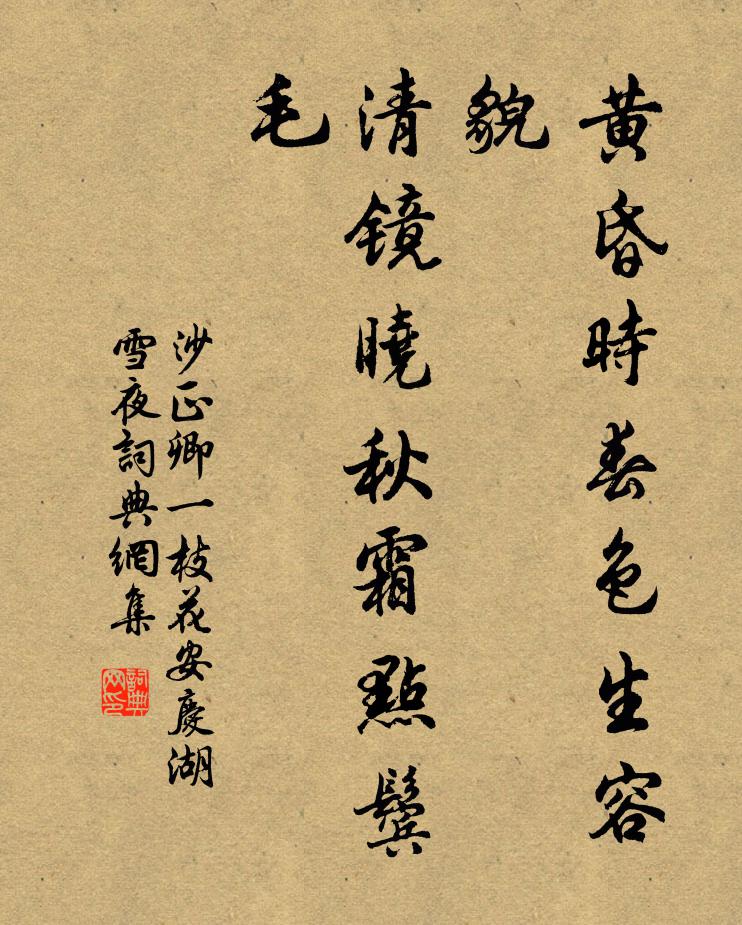 黄昏時春色生容
貌
清鏡曉秋霜點鬢
毛
沙正卿一枝花安慶湖
雪夜詞典網集
詞典
网印